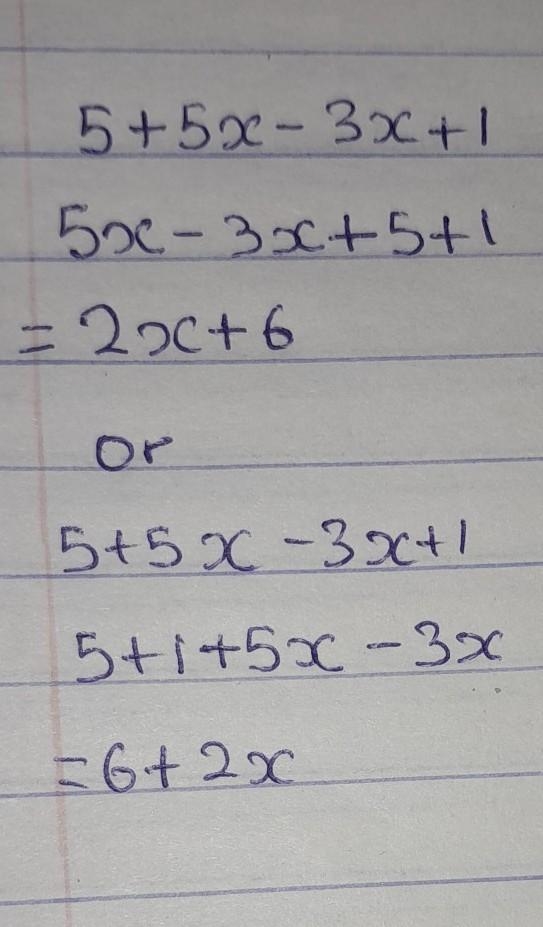 5+5x-3x+1
5x-3x+5+1
=2x+6
or
5+5x-3x+1
5+1+5x-3x
=6+2x